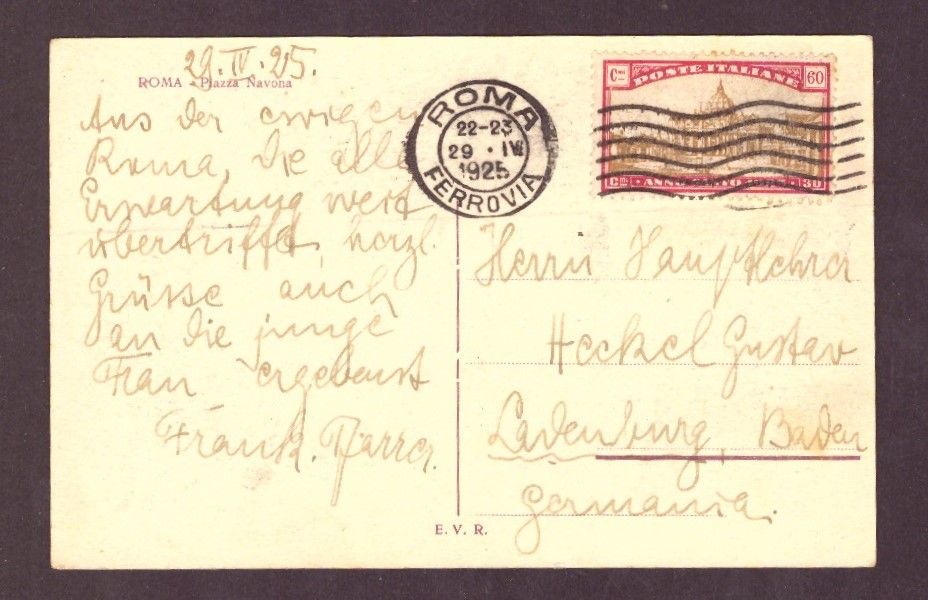 29.IV.25.
ROMA - Piazza Navona
Aus der ewigen
Roma, die alle
Erwartung weit
übertrifft, herzl.
Grüsse auch
an die junge
Frau ergebenst
Frank. Pfarrer.
ROMA
22-23
29 · IV
1925
FERROVIA
Cmi POSTE ITALIANE 60
Cmi ANNO 30
Herrn Hauptlehrer
Heckel Gustav
Ladenburg, Baden
Germania.
E. V. R.